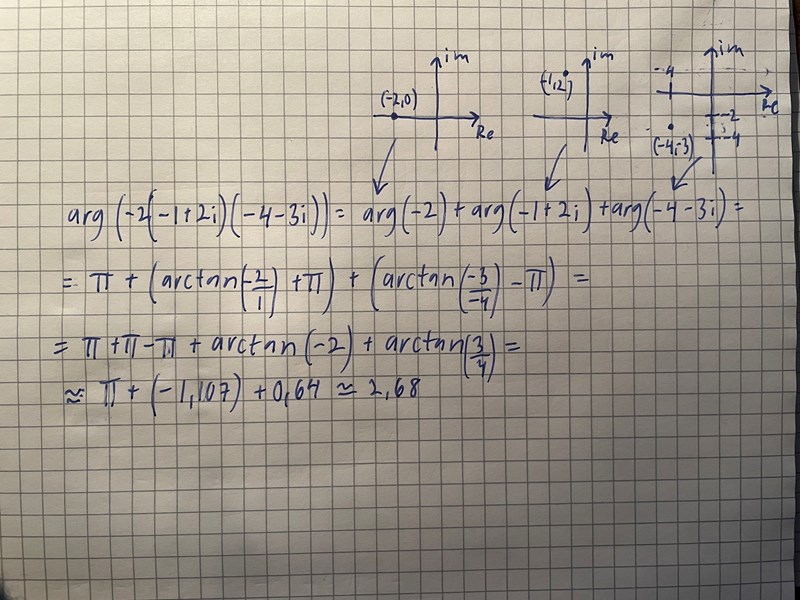 im im im
(-2,0) Re
(-1,2) Re
-4 Re
-2
-4
(-4,-3)
arg (-2(-1+2i)(-4-3i)) = arg(-2) + arg(-1+2i) + arg(-4-3i) =
= π + (arctan(-2/1) + π) + (arctan(-3/-4) - π) =
= π + π - π + arctan (-2) + arctan(3/4) =
≈ π + (-1,107) + 0,64 ≈ 2,68